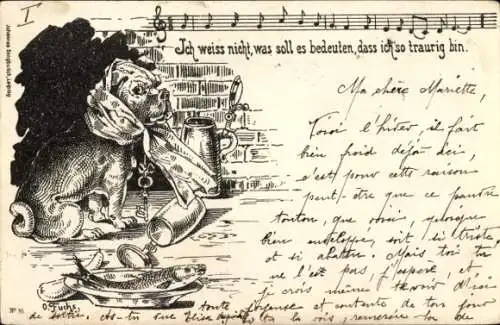 I
Ich weiss nicht, was soll es bedeuten, dass ich so traurig bin.
Ma chère Mariette,
Voici l'hiver, il fait
bien froid déjà ici,
c'est pour cette raison
peut-être que ce pauvre
toutou, que voici, quoique
bien enveloppé, soit si triste
et si abattu. Mais toi tu
ne l'es pas, j'espère, et
je crois même
O. Fuchs.
toute joyeuse et contente de ton
de As-tu vue Elise
la vois, remercie la de